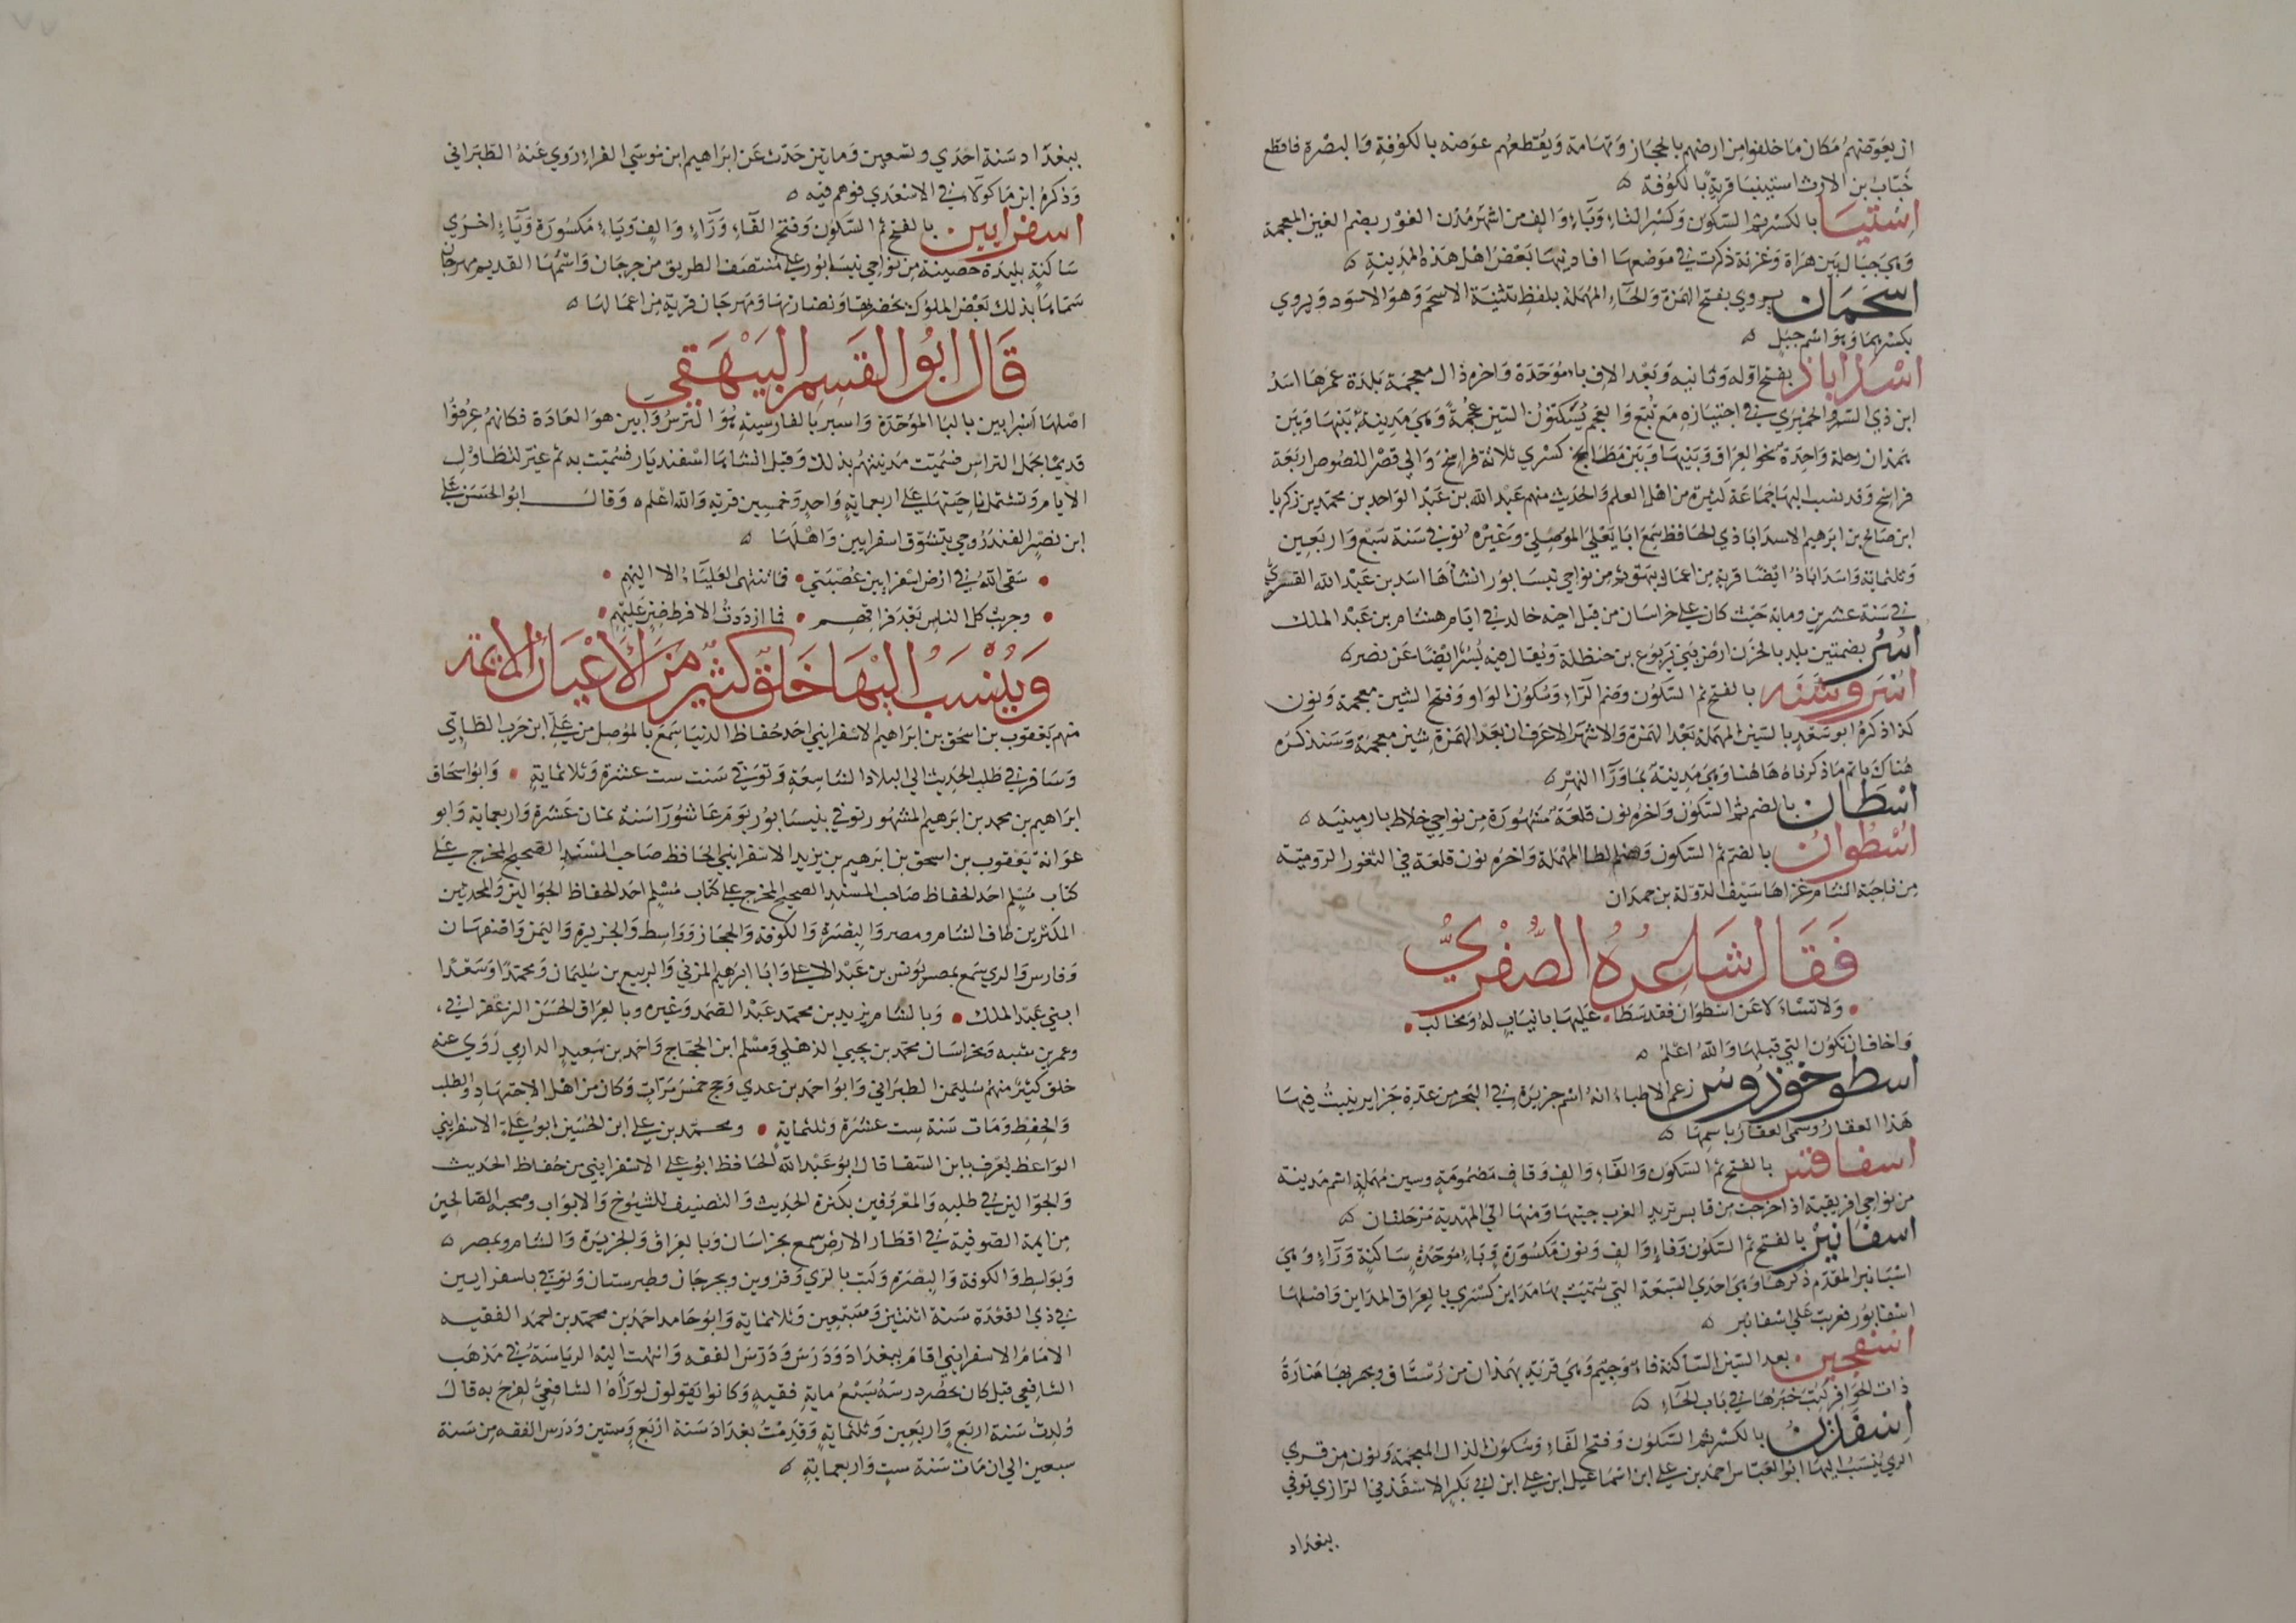 ان يعوضهم مكان ما خلفوا من ارضهم بالحجاز وتهامة ويقطعهم عوضه بالكوفة والبصرة فاقطع
خباب بن الارت استينيا قرية بالكوفة
اِسْتِيَا بالكسر ثم السكون وكسر التاء وياء والف من اشهر مدن الغور بضم الغين المعجمة
وهي جبال بين هراة وغزنة ذكرت في موضعها افادنيها بعض اهل هذه المدينة
اسحمان يروي بفتح الهمزة والحاء المهملة بلفظ تثنية الاسحم وهو الاسود ويروي
بكسرهما وهو اسم جبل
اسداباذ بفتح اوله وثانيه وبعد الالف باء موحدة واخره ذال معجمة بلدة عمرها اسد
ابن ذي السرو الحميري في اجتيازه مع تبع والعجم يسكنون السين عجمة وهي مدينة بينها وبين
همذان رحلة واحدة نحو العراق وبينها وبين مطابخ كسري ثلاثة فراسخ والي قصر اللصوص اربعة
فراسخ وقد نسب اليها جماعة كثيرة من اهل العلم والحديث منهم عبد الله بن عبد الواحد بن محمد بن زكريا
ابن صالح بن ابرهيم الاسداباذي الحافظ سمع ابا يعلي الموصلي وغيره توفي سنة سبع واربعين
وثلثماية واسداباذ ايضا قرية من اعمال بيهق من نواحي نيسابور انشاها اسد بن عبد الله القسري
في سنة عشرين وماية حيث كان علي خراسان من قبل اخيه خالد في ايام هشام بن عبد الملك
اسر بضمتين بلد بالحزن ارض بني يربوع بن حنظلة ويقال فيه يسر ايضا عن نصر
اسروشنه بالفتح ثم السكون وضم الراء وسكون الواو وفتح الشين معجمة ونون
كذا ذكره ابو سعد بالسين المهملة بعد الهمزة والاشهر الاعرف ان بعد الهمزة شين معجمة وسنذكره
هناك باتم ما ذكرناه هاهنا وهي مدينة بما ورآ النهر
اسطان بالضم ثم السكون واخره نون قلعة مشهورة من نواحي خلاط بارمينيه
اسطوان بالضم ثم السكون وضم الطا المهملة واخره نون قلعة في الثغور الرومية
من ناحية الشام غزاها سيف الدولة بن حمدان
فقال شاعره الصفري
ولا تسئلا عن اسطوان فقد سطا • عليها بانياب له ومخالب
واخاف ان تكون التي قبلها والله اعلم
اسطوخوذوس زعم الاطباء انه اسم جزيرة في البحر من عدة جزاير ينبت فيها
هذا العقار وسمي العقار باسمها
اسفاقس بالفتح ثم السكون والفاء والف وقاف مضمومة وسين مهملة اسم مدينة
من نواحي افريقية اذا خرجت من قابس تريد الغرب جيتها ومنها الي المهدية مرحلتان
اسفانبر بالفتح ثم السكون وفاء والف ونون مكسورة وباء موحدة ساكنة وراء وهي
اسبانبر المقدم ذكرها وهي احدي السبعة التي سميت بها مداين كسري بالعراق المداين واصلها
اسفابور فعربت علي اسفانبر
اسفجين بعد السين الساكنة فاء وجيم وهي قرية بهمذان من رستاق وبها منارة
ذات الحوافر كتب خبرها في باب الحاء
اسفذن بالكسر ثم السكون وفتح الفاء وسكون الذال المعجمة ونون من قري
الري ينسب اليها ابو العباس احمد بن علي ابن اسماعيل ابن علي ابن ابي بكر الاسفذني الرازي توفي
ببغداد
ببغداد سنة احدي وتسعين ومايتين حدث عن ابراهيم ابن موسي الفراء روي عنه الطبراني
وذكره ابن ماكولا في الاسعدي فوهم فيه
اسفرايين بالفتح ثم السكون وفتح الفاء وراء والف وياء مكسورة وياء اخري
ساكنة بليدة حصينة من نواحي نيسابور علي منتصف الطريق من جرجان واسمها القديم مهرجان
سماها بذلك بعض الملوك لخضرتها ونضارتها ومهرجان قرية من اعمالها
قال ابو القسم البيهقي
اصلها اسبرايين بالبا الموحدة واسبر بالفارسية هو الترس وايين هو العادة فكانهم عرفوا
قديما بحمل التراس فسميت مدينتهم بذلك وقيل انشاها اسفنديار فسميت به ثم غير لتطاول
الايام وتشتمل ناحيتها علي اربعماية واحد وخمسين قرية والله اعلم وقال ابو الحسن علي
ابن نصر الفندروجي يتشوق اسفرايين واهلها
سقي الله في ارض اسفرايين عصبتي • فما تنتهي العلياء الا اليهم
وجربت كل الناس بعد فراقهم • فما ازددت الا فرط ضن عليهم
وينسب اليها خلق كثير من الاعيان الايمة
منهم يعقوب بن اسحق بن ابراهيم الاسفرايني احد حفاظ الدنيا سمع بالموصل من علي ابن حرب الطايي
وسافر في طلب الحديث الي البلاد الشاسعة وتوفي سنت ست عشرة وثلاثماية • وابو اسحاق
ابراهيم بن محمد بن ابرهيم المشهور توفي بنيسابور يوم عاشورا سنة ثمان عشرة واربعماية وابو
عوانة يعقوب بن اسحق بن ابرهيم بن يزيد الاسفرايني الحافظ صاحب المسند الصحيح المخرج علي
كتاب مسلم احد الحفاظ صاحب المسند الصحيح المخرج علي كتاب مسلم احد الحفاظ الجوالين والمحدثين
المكثرين طاف الشام ومصر والبصرة والكوفة والحجاز وواسط والجزيرة واليمن واصفهان
وفارس والري سمع بمصر يونس بن عبد الاعلي وابا ابرهيم المزني والربيع بن سليمان ومحمدا وسعدا
ابني عبد الملك • وبالشام يزيد بن محمد عبد الصمد وغيره وبالعراق الحسن الزعفراني
وعمر بن شبه وبخراسان محمد بن يحيي الذهلي ومسلم ابن الحجاج واحمد بن سعيد الدارمي روي عنه
خلق كثير منهم سليمن الطبراني وابو احمد بن عدي وحج خمس مرات وكان من اهل الاجتهاد والطلب
والحفظ ومات سنة ست عشرة وثلثماية • ومحمد بن علي ابن الحسين ابو علي الاسفرايني
الواعظ يعرف بابن السقا قال ابو عبد الله الحافظ ابو علي الاسفرايني من حفاظ الحديث
والجوالين في طلبه والمعروفين بكثرة الحديث والتصنيف للشيوخ والابواب وصحبه الصالحين
من ايمة الصوفية في اقطار الارض سمع بخراسان وبالعراق والجزيرة والشام وبمصر
وبواسط والكوفة والبصرة وكتب بالري وقزوين وبجرجان وطبرستان وتوفي باسفرايين
في ذي القعدة سنة اثنتين وسبعين وثلاثماية وابو حامد احمد بن محمد بن احمد الفقيه
الامام الاسفرايني اقام ببغداد ودرس ودرس الفقه وانتهت اليه الرياسة في مذهب
الشافعي قيل كان يحضر درسه سبع ماية فقيه وكانوا يقولون لو رآه الشافعي لفرح به قال
ولدت سنة اربع واربعين وثلثماية وقدمت بغداد سنة اربع وستين ودرس الفقه من سنة
سبعين الي ان مات سنة ست واربعماية